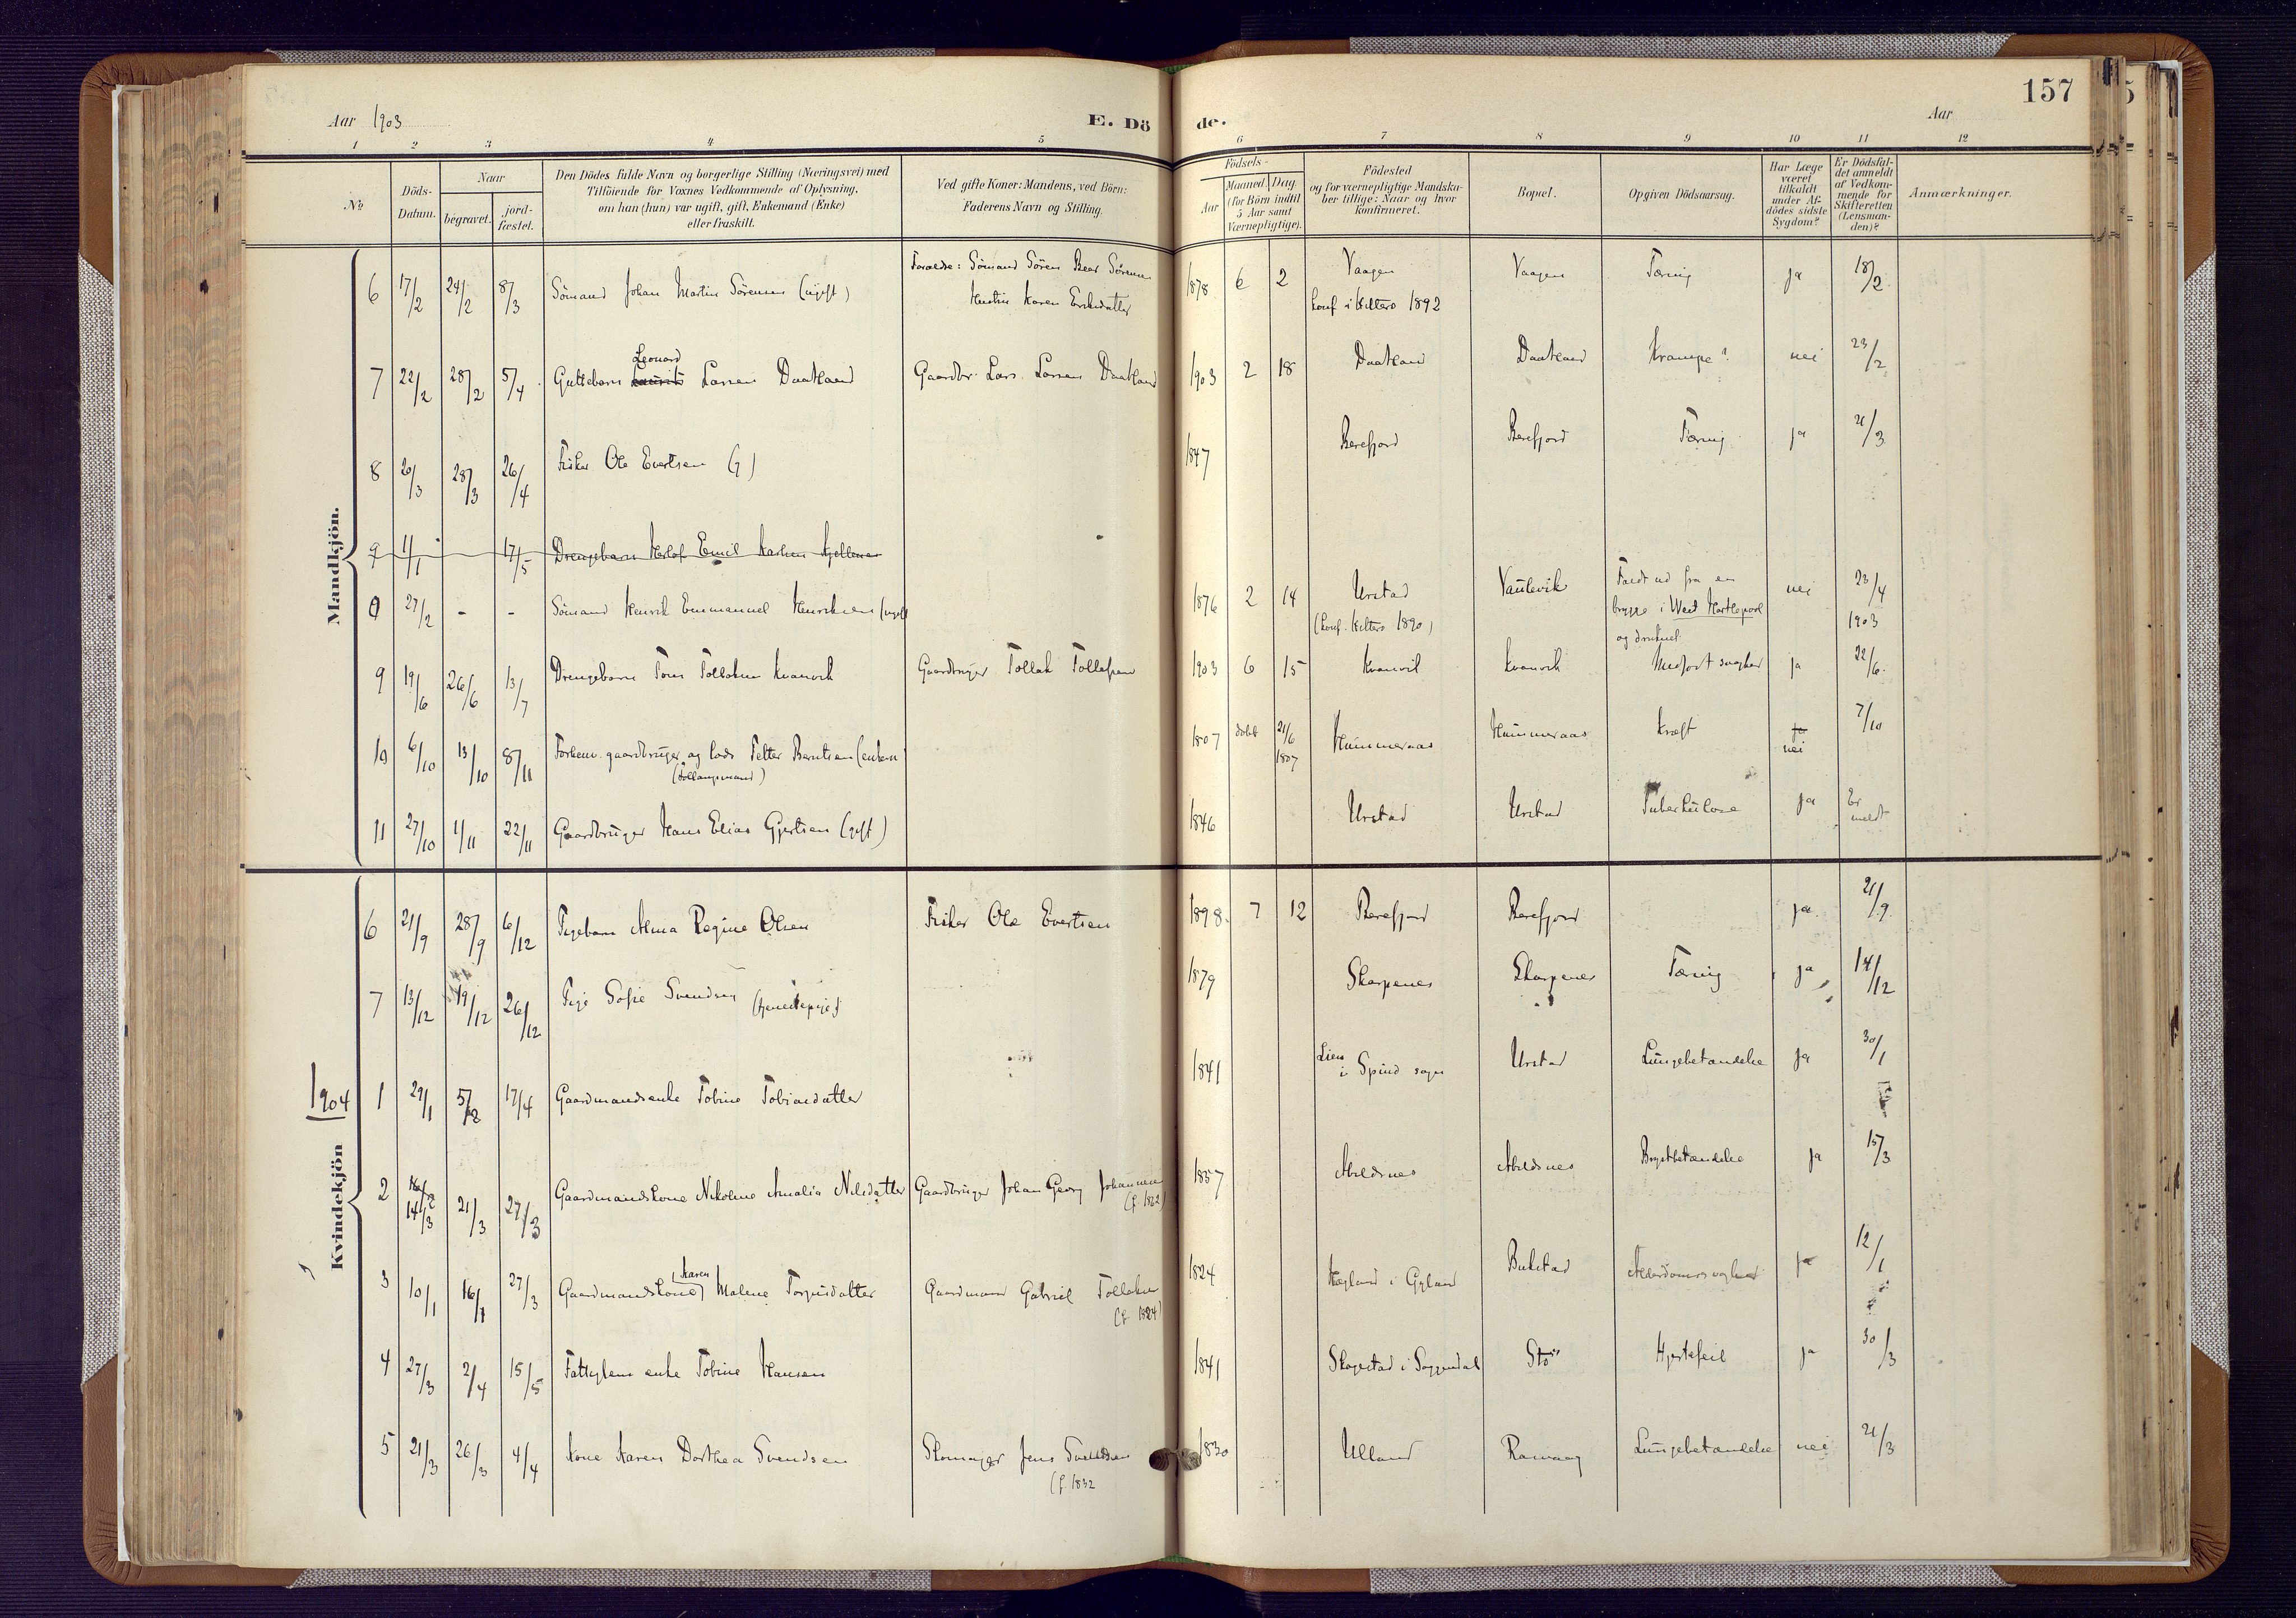 157
Aar 1903
E. Dö de.
Aar
1 2 3 4 5 6 7 8 9 10 11 12
No
Döds-Datum.
Naar
begravet.
jord-fæstet.
Den Dödes fulde Navn og borgerlige Stilling (Næringsvei) med
Tilföiende for Voxnes Vedkommende af Oplysning,
om han (hun) var ugift, gift, Enkemand (Enke)
eller fraskilt.
Ved gifte Koner: Mandens, ved Börn:
Faderens Navn og Stilling.
Födsels-
Aar
Maaned. Dag.
(for Börn indtil
5 Aar samt
Værnepligtige).
Födested
og for værnepligtige Mandska-
ber tillige: Naar og hvor
konfirmeret.
Bopæl.
Opgiven Dödsaarsag.
Har Læge
været
tilkaldt
under Af-
dödes sidste
Sygdom?
Er Dödsfal-
det anmeldt
af Vedkom-
mende for
Skifteretten
(Lensman-
den)?
Anmærkninger.
Mandkjön.
6 17/2 24/2 8/3 Sömand Johan Martin Sörensen (ugift) Forældre: Sömand Sören Sörensen
Hustru Karen 1878 6 2 Vaagen
konf. i Hitterø 1892 Vaagen Tæring ja 18/2
7 22/2 28/2 5/4 Guttebarn Leonard Larsen Daatland Gaardbr. Lars Larsen Daatland 1903 2 18 Daatland Daatland Krampe? nei 23/2
8 20/3 28/3 26/4 Fisker Ole Evertsen (g) 1847 Berefjord Berefjord Tæring ja 21/3
9 1/1 17/5 Drengebarn Emil
9 27/2 - - Sömand Henrik Emmanuel Henriksen (ugift 1876 2 14 Urstad
(konf. Hitterø 1890) Vaulevik Faldt ud fra en
brygge i West Hartlepool
og druknet nei 23/4
1903
9 19/6 26/6 13/7 Drengebarn Tom Tollaksen Kvanvik Gaardbruger Tollak Tollaksen 1903 6 15 Kvanvik Kvanvik Medfødt svaghed ja 22/6
10 6/10 13/10 8/11 Forhenv. gaardbruger og lods Petter Berntsen (enkem
1807 döbt 21/6
1807 Hummeraas Hummeraas Kræft ja
nei 7/10
11 27/10 1/11 22/11 Gaardbruger Hans Elias Gjertsen (gift) 1846 Urstad Urstad Tuberkulose ja Er
meldt
Kvindekjön
6 21/9 28/9 6/12 Pigebarn Alma Regine Olsen Fisker Ole Evertsen 1898 7 12 Berefjord Berefjord ja 21/9
7 13/12 19/12 26/12 Pige Sofie Svendsen (tjenestepige) 1879 Skarpenes Skarpenes Tæring ja 14/12
1904
1 29/1 5/2 17/4 Gaardmandsenke Tobine Tobiasdatter 1841 Lien
i Spind sogn Urstad Lungebetændelse ja 30/1
2 14/3 21/3 27/3 Gaardmandskone Nikoline Amalia Nilsdatter Gaardbruger Johan Georg Johannesen
1837 Abildsnes Abildsnes Brystbetændelse ja 15/3
3 10/1 16/1 27/3 Gaardmandskone Karen Malene Torgusdatter Gaardmand Gabriel Tollaksen
(f. 1824) 1824 Hægland i Gyland Bukstad Alderdomssvaghed ja 12/1
4 27/3 2/4 15/5 Fattiglem enke Tobine Hansen 1841 Skogestad i Soggendal Stö Hjertefeil ja 30/3
5 21/3 26/3 4/4 Kone Karen Dorthea Svendsen Skomager Jens Svendsen
(f. 1832 1830 Ulland Rasvaag Lungebetændelse nei 21/3